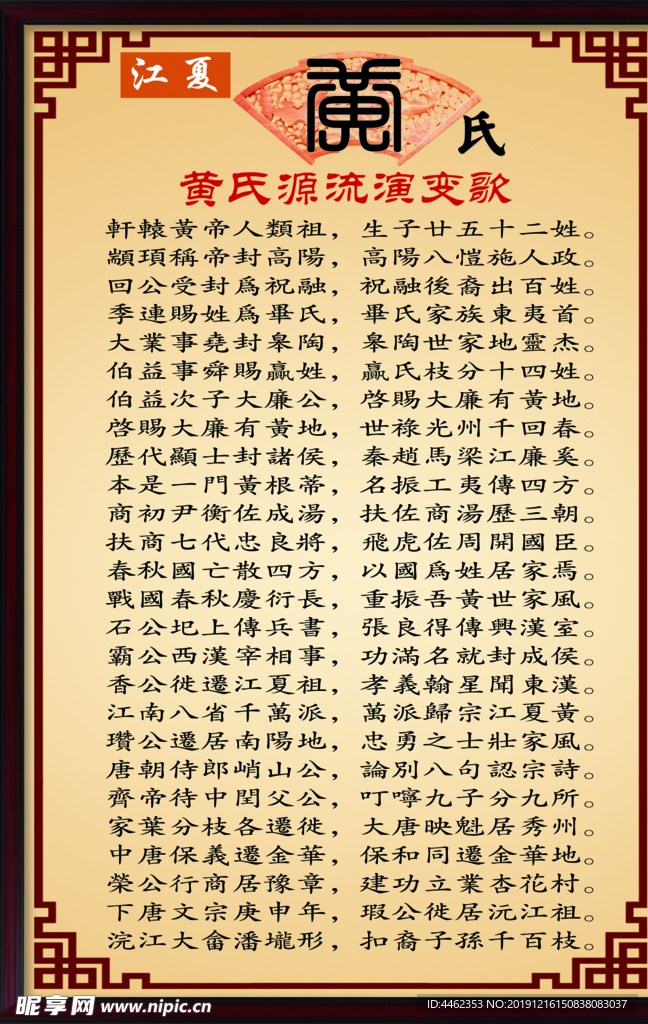 江夏
黄
氏
黄氏源流演变歌
軒轅黃帝人類祖，生子廿五十二姓。
顓頊稱帝封高陽，高陽八愷施人政。
回公受封爲祝融，祝融後裔出百姓。
季連賜姓爲畢氏，畢氏家族東夷首。
大業事堯封皋陶，皋陶世家地靈杰。
伯益事舜賜贏姓，贏氏枝分十四姓。
伯益次子大廉公，啓賜大廉有黃地。
啓賜大廉有黃地，世祿光州千回春。
歷代顯士封諸侯，秦趙馬梁江廉奚。
本是一門黃根蒂，名振工夷傳四方。
商初尹衡佐成湯，扶佐商湯歷三朝。
扶商七代忠良將，飛虎佐周開國臣。
春秋國亡散四方，以國爲姓居家焉。
戰國春秋慶衍長，重振吾黃世家風。
石公圯上傳兵書，張良得傳興漢室。
霸公西漢宰相事，功滿名就封成侯。
香公徙遷江夏祖，孝義翰星聞東漢。
江南八省千萬派，萬派歸宗江夏黃。
瓚公遷居南陽地，忠勇之士壯家風。
唐朝侍郎峭山公，論別八句認宗詩。
齊帝待中閏父公，叮嚀九子分九所。
家葉分枝各遷徙，大唐映魁居秀州。
中唐保義遷金華，保和同遷金華地。
榮公行商居豫章，建功立業杏花村。
下唐文宗庚申年，瑕公徙居沅江祖。
浣江大畲潘壠形，扣裔子孫千百枝。
昵享网 www.nipic.cn
ID:4462353 NO:20191216150838083037